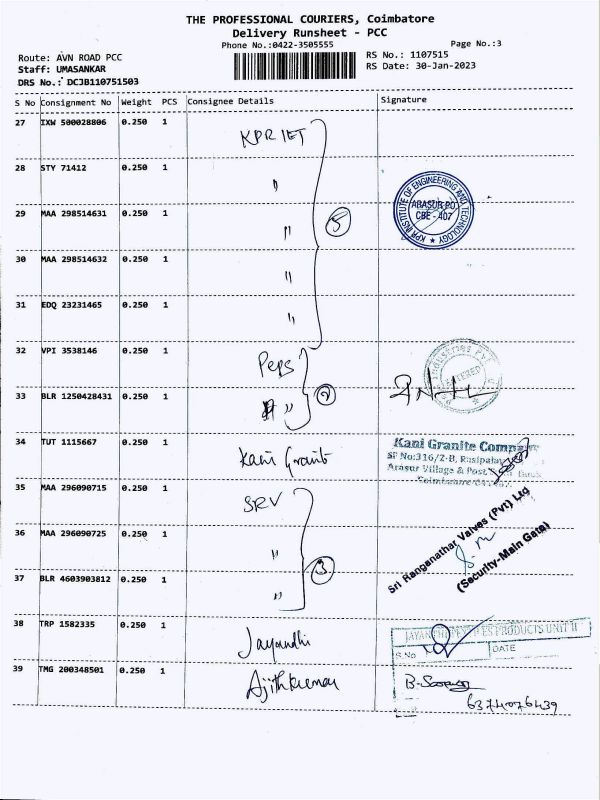 THE PROFESSIONAL COURIERS, Coimbatore
Delivery Runsheet - PCC
Phone No.:0422-3505555
Page No.:3
Route: AVN ROAD PCC
RS No.: 1107515
Staff: UMASANKAR
RS Date: 30-Jan-2023
DRS No.: DCJB110751503
S No Consignment No Weight PCS Consignee Details Signature
27 IXW 500028806 0.250 1 KPRIET
28 STY 71412 0.250 1 "
KPR INSTITUTE OF ENGINEERING AND TECHNOLOGY
ARASUR PO
CBE - 407
29 MAA 298514631 0.250 1 " 5
30 MAA 298514632 0.250 1 "
31 EDQ 23231465 0.250 1 "
32 VPI 3538146 0.250 1 Peps
33 BLR 1250428431 0.250 1 " 2
34 TUT 1115667 0.250 1 Kani Granit
Kani Granite Company
SF No:316/2-B, Rasipalayam
Arasur Village & Post
35 MAA 296090715 0.250 1 SRV
36 MAA 296090725 0.250 1 " 3
Sri Ranganathar Valves (Pvt) Ltd
(Security-Main Gate)
37 BLR 4603903812 0.250 1 "
38 TRP 1582335 0.250 1 Jayandhi
PRODUCTS UNIT II
S No DATE
39 TMG 200348501 0.250 1 Ajithkumar
6374076439